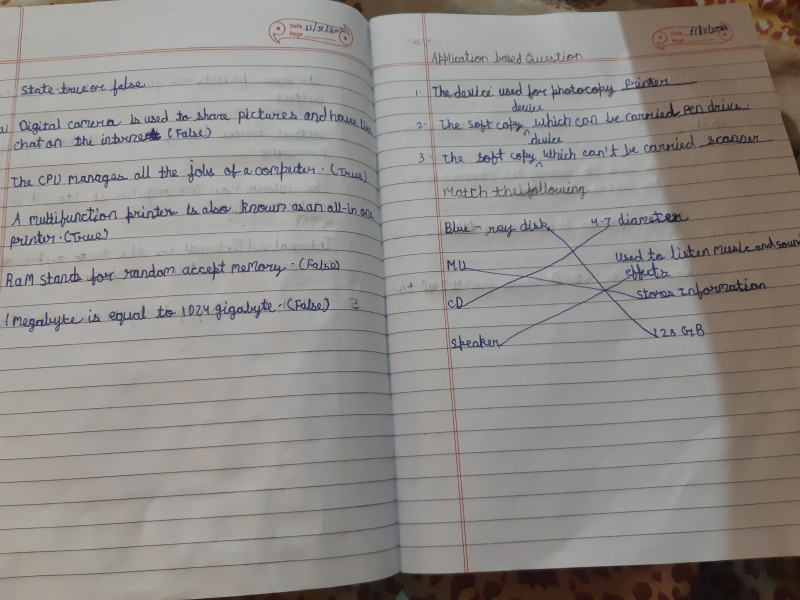 Date 11/5/2021
Page
State true or false
Digital camera is used to share pictures and have live
chat on the internet (False)
The CPU manages all the jobs of a computer. (True)
A multifunction printer is also known as an all-in one
printer. (True)
RaM stands for random accept memory. (False)
1 Megabyte is equal to 1024 gigabyte. (False)
Date
Page
Application based Question
1. The device used for photocopy printer
device
2. The soft copy ^ which can be carried pen drive.
device
3. The soft copy ^ which can't be carried scanner
Match the following
Blue-ray disk 4.7 diameter
MU Used to listen music and sound
effects
CD stores Information
speaker 128 GB